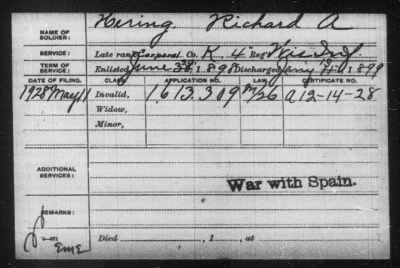 NAME OF SOLDIER: Hering, Richard A
SERVICE: Late rank Corporal Co. K, 4 Reg't Wis Inf
TERM OF SERVICE: Enlisted June 1898 Discharged Jany 1899
DATE OF FILING. CLASS. APPLICATION NO. LAW. CERTIFICATE NO.
1928 May 11 Invalid, 1.613.309 A 12-14-28
Widow,
Minor,
ADDITIONAL SERVICES:
War with Spain.
REMARKS:
EME
Died , 1 , at